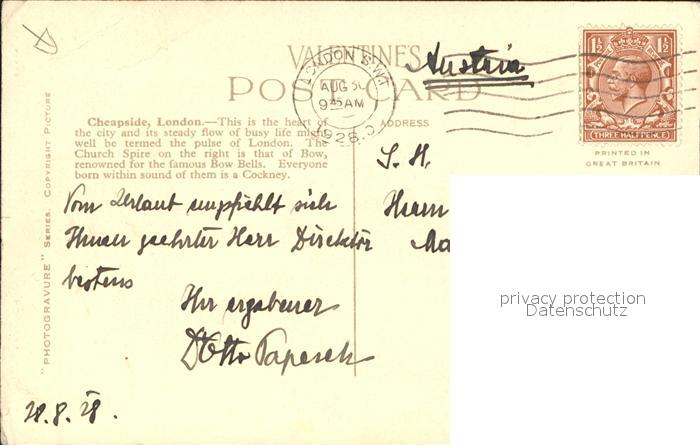 VALENTINE'S
POST CARD
Austria
LONDON S.W.1
AUG 30
9 45 AM
1928
1½ 1½
THREE HALFPENCE
PRINTED IN
GREAT BRITAIN
Cheapside, London.—This is the heart of
the city and its steady flow of busy life might
well be termed the pulse of London. The
Church Spire on the right is that of Bow,
renowned for the famous Bow Bells. Everyone
born within sound of them is a Cockney.
ADDRESS
"PHOTOGRAVURE" SERIES. COPYRIGHT PICTURE
S. H.
Herrn
Vom Urlaub empfiehlt sich
Ihnen geehrter Herr Direktor
bestens
Ihr ergebener
Otto
28.8.28.
privacy protection
Datenschutz